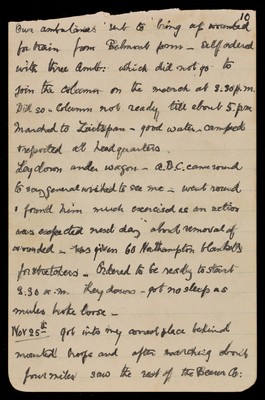 10
Our ambulances sent to bring up wounded
for train from Belmont farm – self ordered
with three Amb: which did not go to
join the column on the march at 3.30 p.m.
Did so – Column not ready till about 5 p.m
marched to Zoutspan – good water – camped
& reported at headquarters.
Lay down under wagon – A.D.C. came round
to say general wished to see me – went round
& found him much exercised as an action
was expected next day about removal of
wounded – was given 60 Northampton blankets
for stretchers – Ordered to be ready to start
2.30 a.m. Lay down – got no sleep as
mules broke loose –
Nov 25th got into my correct place behind
mounted troops and after marching about
four miles saw the rest of the Bearer Co: